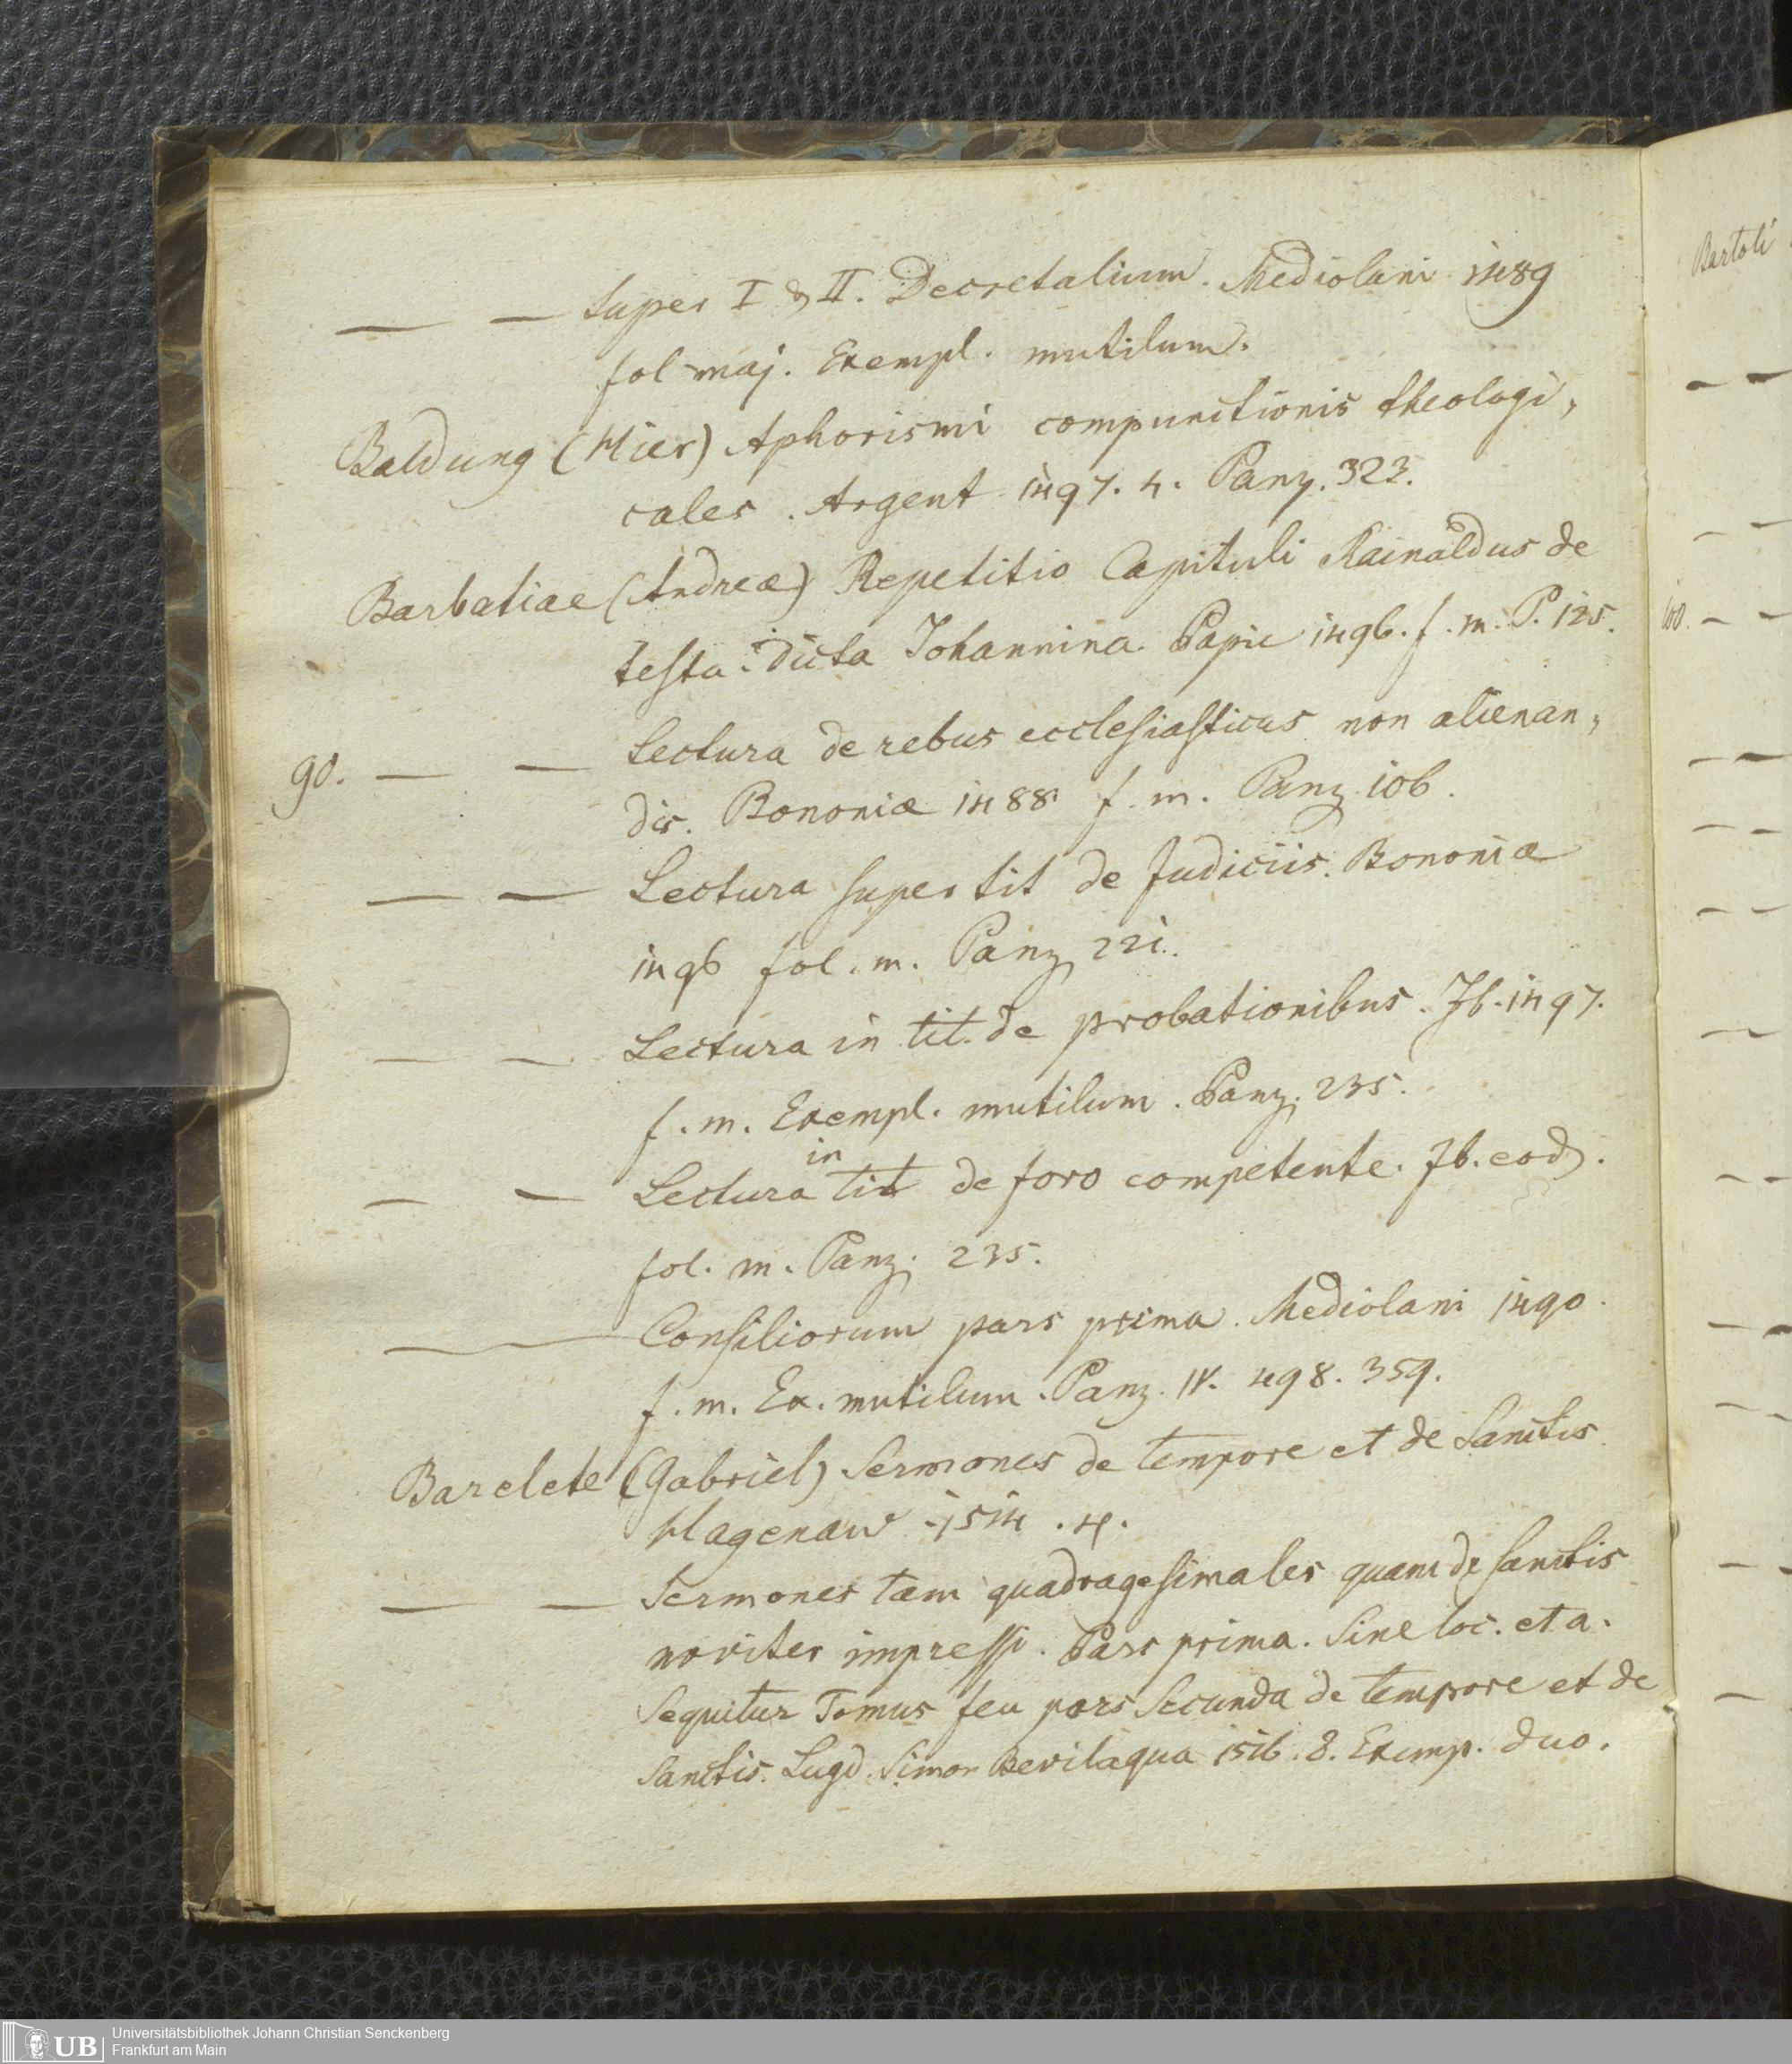 — — super I & II. Decretalium. Mediolani 1489
fol maj. Exempl. mutilum.
Baldung (Hier) Aphorismi compunctionis theologi,
cales. Argent 1497. 4. Panz. 323.
Barbatiae (Andreæ) Repetitio Capituli Rainaldus de
testa: dicta Johannina. Papie 1496. f. m. P. 125.
90. — — Lectura de rebus ecclesiasticus non alienan,
dis. Bononiæ 1488 f. m. Panz 106.
— — Lectura super tit de Judiciis. Bononiæ
1496 fol. m. Panz 221.
— — Lectura in tit. de probationibus. Ib. 1497.
f. m. Exempl. mutilum. Panz. 235.
— — Lectura in tit de foro competente. Ib. eod.
fol. m. Panz. 235.
— Consiliorum pars prima. Mediolani 1490.
f. m. Ex. mutilum. Panz. IV. 498. 359.
Barelete (Gabriel) Sermones de tempore et de Sanctis
Hagenaw 1514. 4.
— — Sermones tam quadragesimales quam de sanctis
noviter impressi. Pars prima. Sine loc. et a.
Sequitur Tomus seu pars Secunda de tempore et de
Sanctis. Lugd. Simon Bevilaqua 1516. 8. Exemp. duo.
Bartoli
100. — —
UB Universitätsbibliothek Johann Christian Senckenberg
Frankfurt am Main